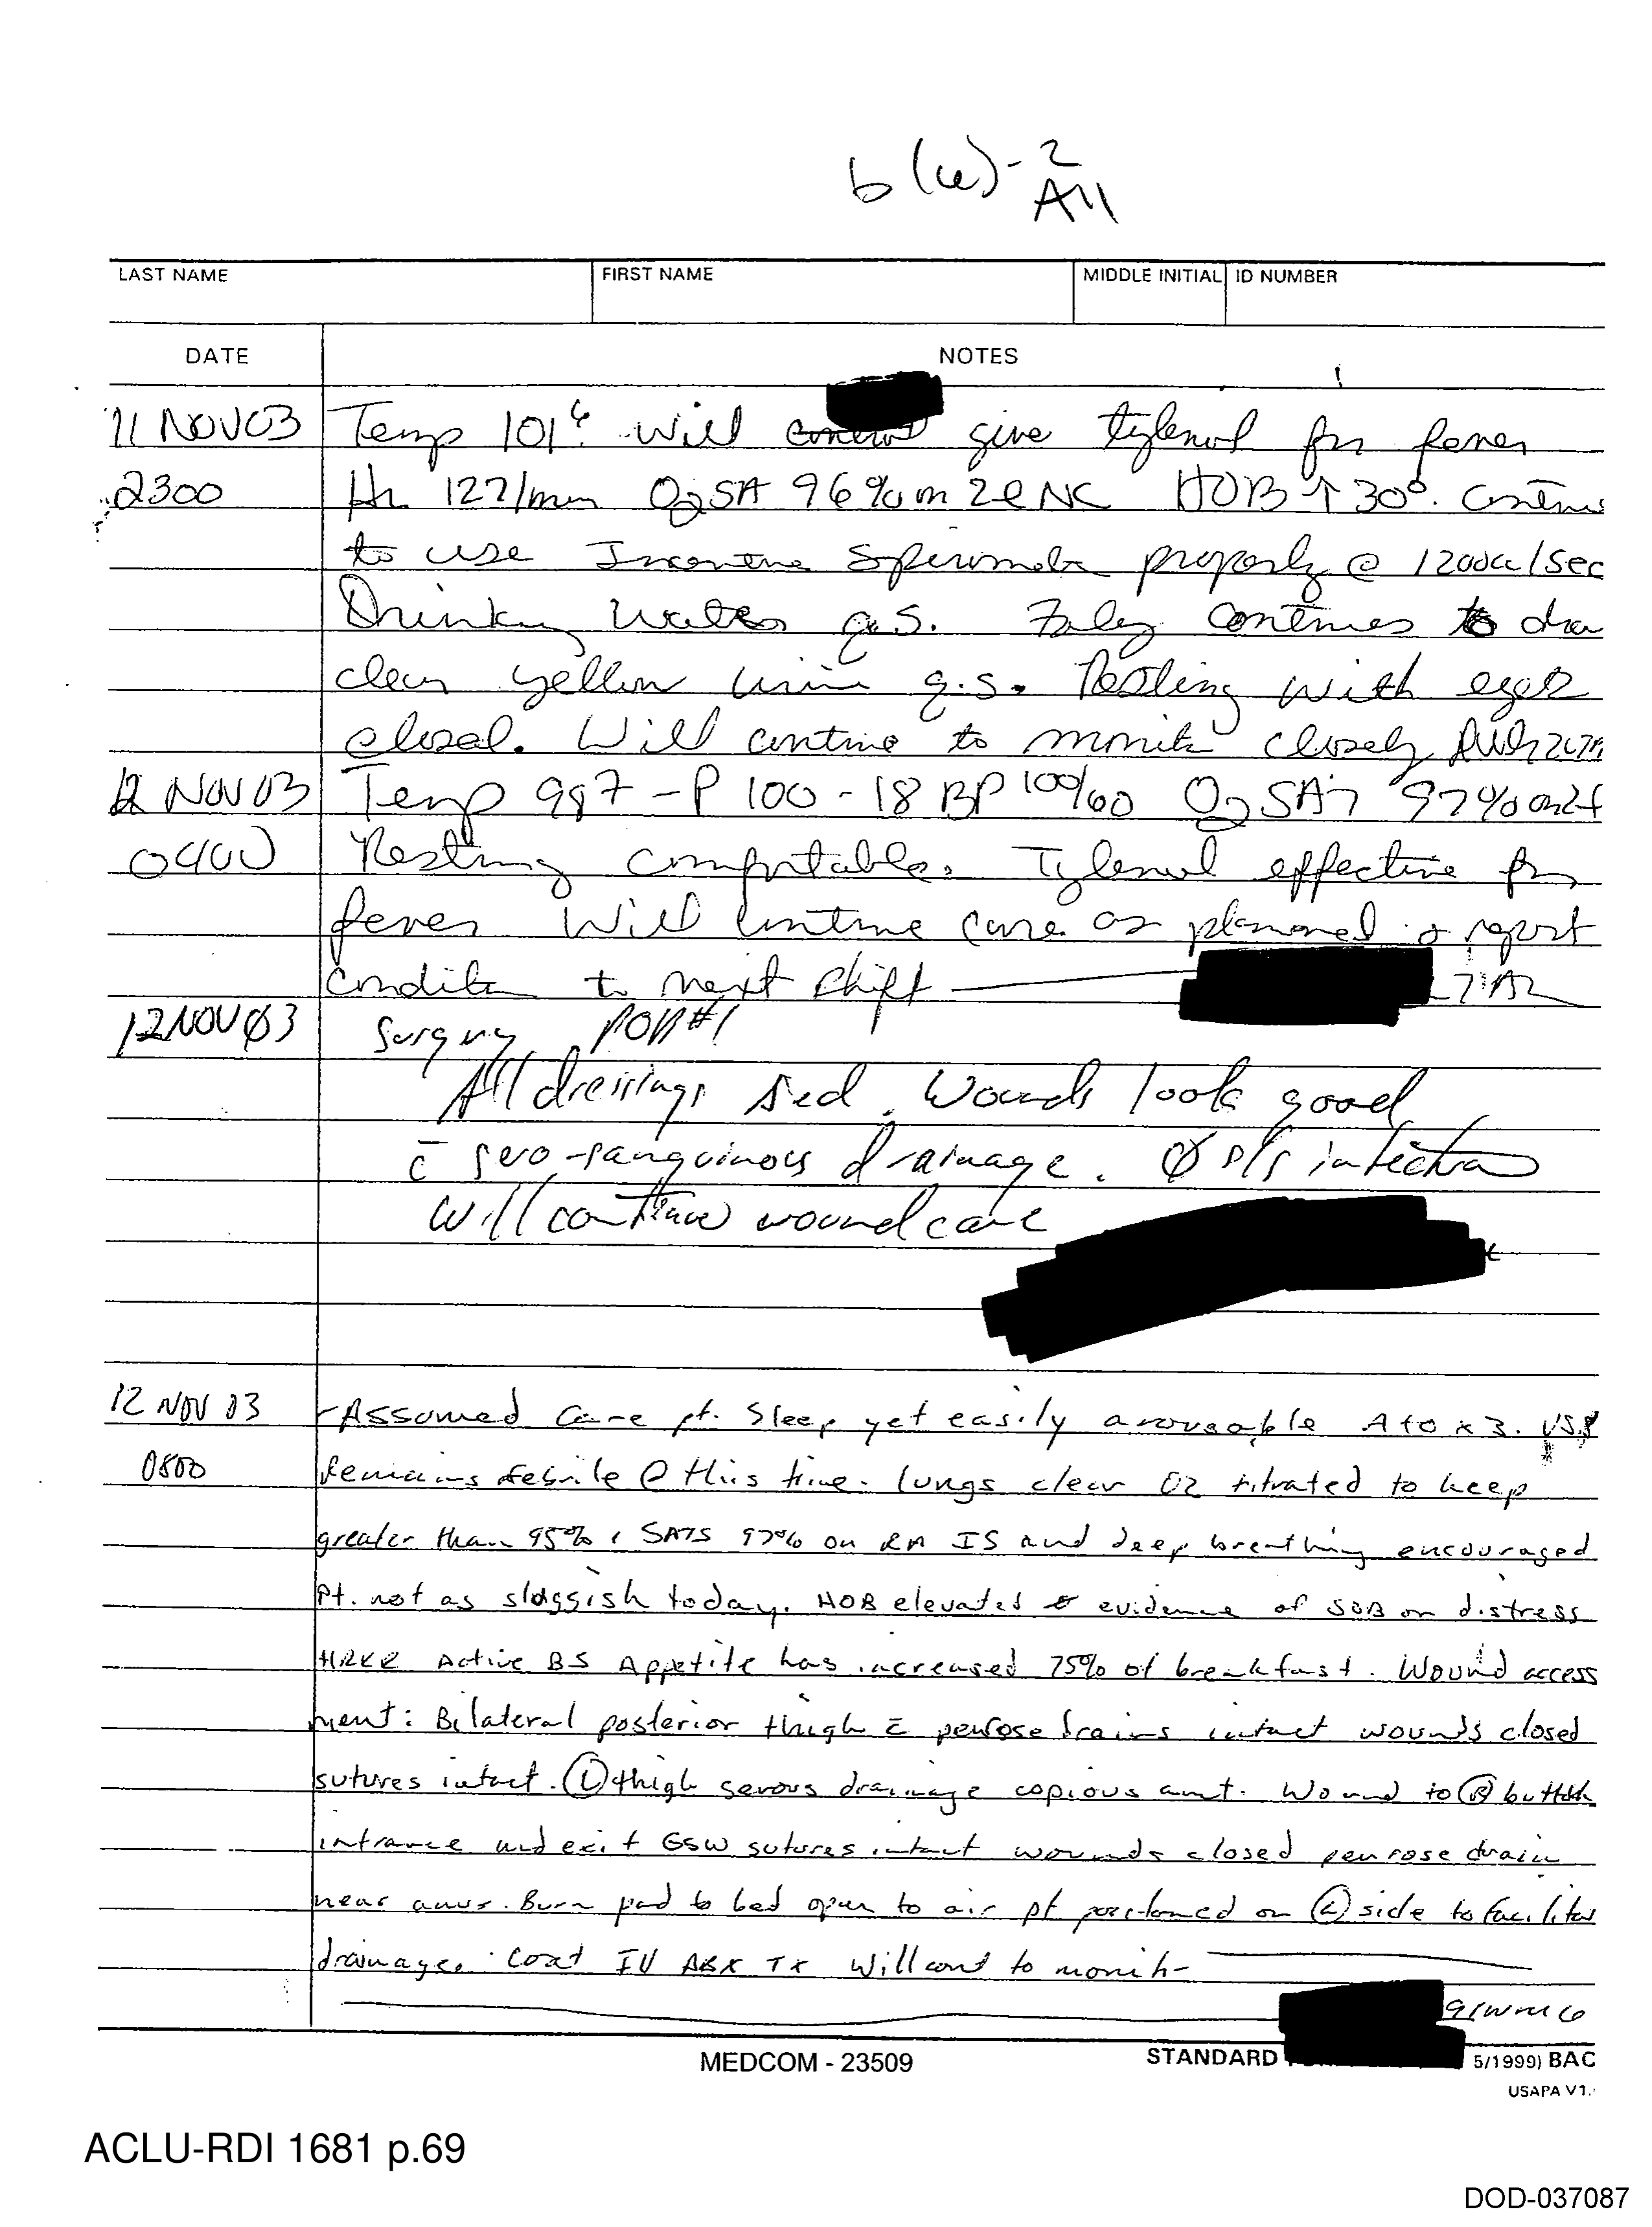 b(6)-2
All
LAST NAME FIRST NAME MIDDLE INITIAL ID NUMBER
DATE NOTES
11 NOV 03 Temp 101⁶ will give tylenol for fever
2300 Hr 127/min O2 SAT 96% on 2l NC HOB ↑ 30°. Continue
to use Incentive Spirometer properly @ 1200cc/sec
Drinking water q.s. Foley continues to dra
clear yellow urine q.s. Resting with eyes
closed. Will continue to monitor closely
12 NOV 03 Temp 99⁷ - P 100 - 18 BP 100/60 O2 SAT 97% on 2l
0400 Resting comfortable. Tylenol effective for
fever Will continue care as planned & report
condition to next shift
12 NOV 03 Surgery POD #1
All dressings ∆ed. Wounds look good
c̄ sero-sanguinous drainage. Ø s/s infection
Will continue wound care
12 NOV 03 - Assumed Care pt. Sleep yet easily arouseable A+O x 3. VSS
0800 Remains febrile @ this time. lungs clear O2 titrated to keep
greater than 95%, SATS 97% on RA IS and deep breathing encouraged
Pt. not as sluggish today. HOB elevated ø evidence of SOB or distress
HRRR Active BS Appetite has increased 75% of breakfast. Wound access
ment: Bilateral posterior thigh c̄ penrose drains intact wounds closed
sutures intact. Ⓛ thigh serous drainage copious amt. Wound to Ⓡ buttock
intrance and exit GSW sutures intact wounds closed penrose drain
near anus. Burn pad to bed open to air pt positioned on Ⓛ side to facilitat
drainage. Cont IV ABX TX Will cont to monitor
91WM6
MEDCOM - 23509 STANDARD 5/1999) BAC
USAPA V1.
ACLU-RDI 1681 p.69
DOD-037087